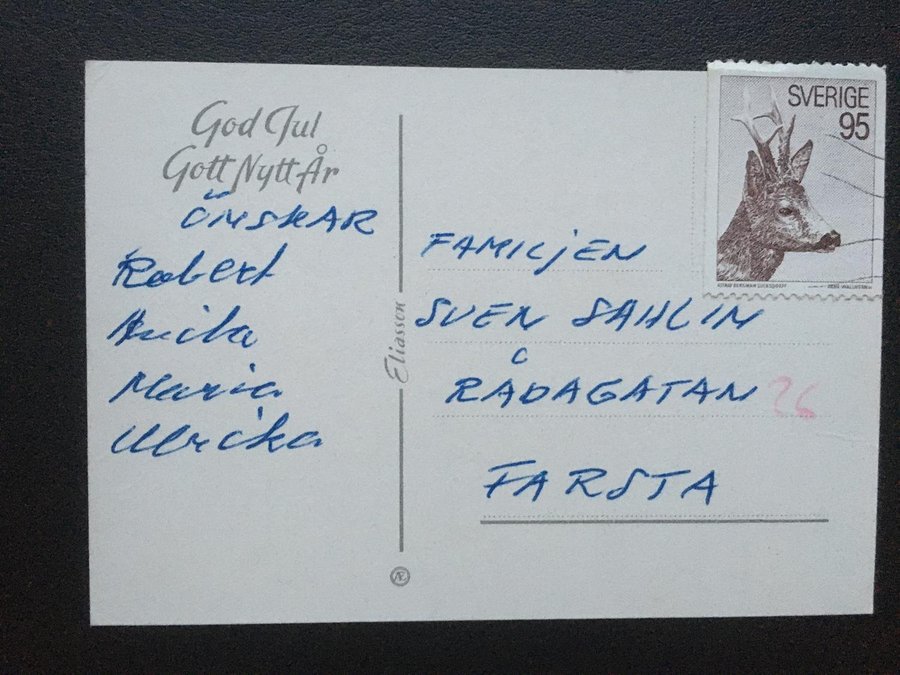 God Jul
Gott Nytt År
ÖNSKAR
Robert
Anita
Maria
Ulrika
Eliasson
SVERIGE
95
FAMILJEN
SVEN SAHLIN
RÅDAGATAN 26
FARSTA